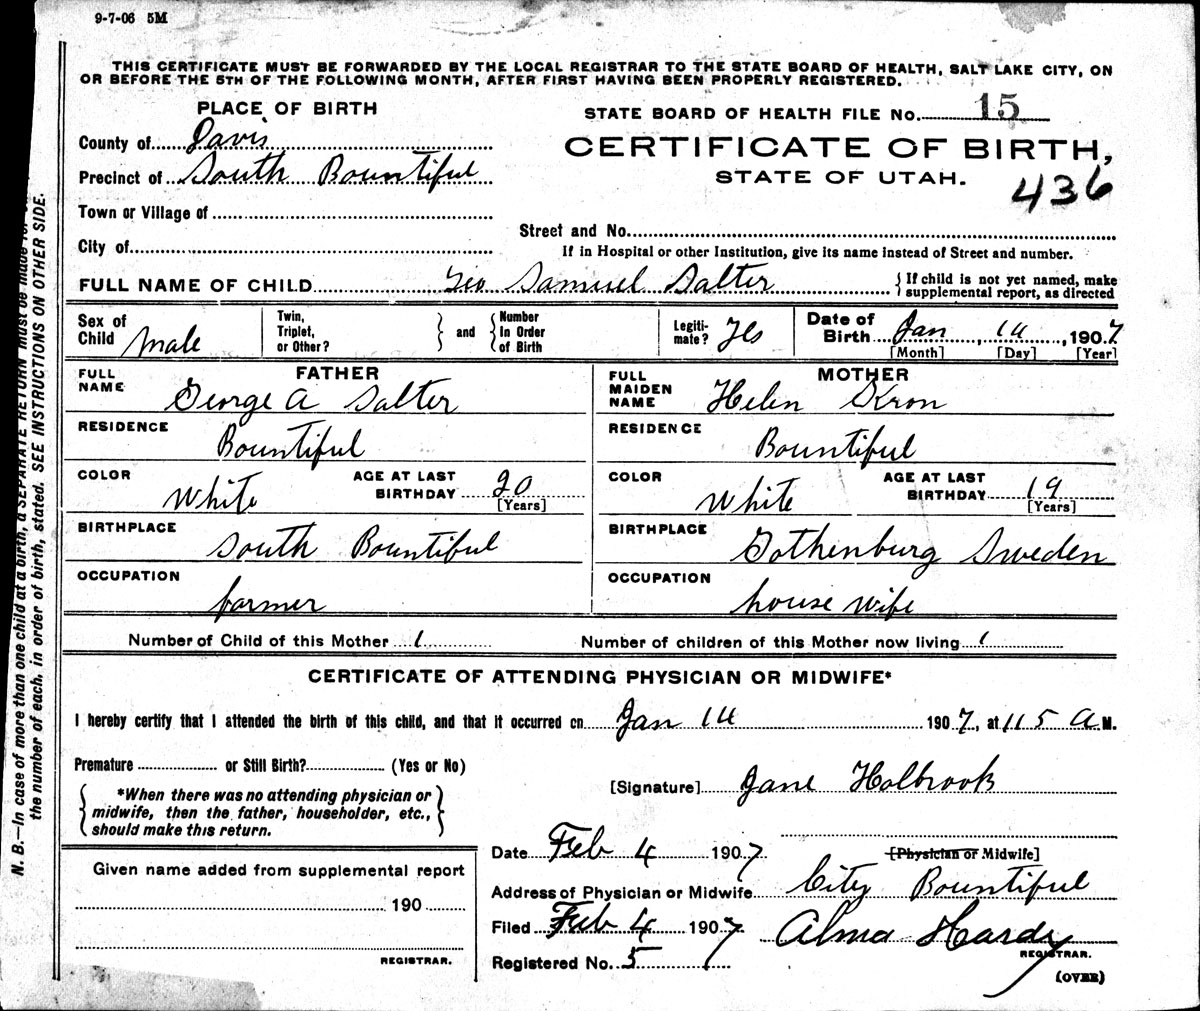 9-7-06 5M
THIS CERTIFICATE MUST BE FORWARDED BY THE LOCAL REGISTRAR TO THE STATE BOARD OF HEALTH, SALT LAKE CITY, ON
OR BEFORE THE 5TH OF THE FOLLOWING MONTH, AFTER FIRST HAVING BEEN PROPERLY REGISTERED.
PLACE OF BIRTH
STATE BOARD OF HEALTH FILE No. 15
County of Davis
CERTIFICATE OF BIRTH,
Precinct of South Bountiful
STATE OF UTAH.
436
Town or Village of
Street and No.
City of
If in Hospital or other Institution, give its name instead of Street and number.
FULL NAME OF CHILD Geo Samuel Salter
{If child is not yet named, make
supplemental report, as directed
Sex of Child Male
Twin, Triplet, or Other? } and { Number In Order of Birth
Legiti-mate? Yes
Date of Birth Jan, 14, 1907
[Month] [Day] [Year]
FATHER
FULL NAME George A Salter
MOTHER
FULL MAIDEN NAME Helen Kron
RESIDENCE Bountiful
RESIDENCE Bountiful
COLOR White
AGE AT LAST BIRTHDAY 20 [Years]
COLOR White
AGE AT LAST BIRTHDAY 19 [Years]
BIRTHPLACE South Bountiful
BIRTHPLACE Gothenburg Sweden
OCCUPATION farmer
OCCUPATION house wife
Number of Child of this Mother 1
Number of children of this Mother now living 1
CERTIFICATE OF ATTENDING PHYSICIAN OR MIDWIFE*
I hereby certify that I attended the birth of this child, and that it occurred on Jan 14 1907, at 115 A M.
Premature or Still Birth? (Yes or No)
[Signature] Jane Holbrook
{ *When there was no attending physician or
midwife, then the father, householder, etc.,
should make this return. }
[Physician or Midwife]
Date Feb 4 1907
Address of Physician or Midwife City Bountiful
Filed Feb 4 1907
Alma Hardy
REGISTRAR.
Registered No. 5
(OVER)
Given name added from supplemental report
190
REGISTRAR.
N. B.—In case of more than one child at a birth, a SEPARATE RETURN must be made
the number of each, in order of birth, stated. SEE INSTRUCTIONS ON OTHER SIDE.